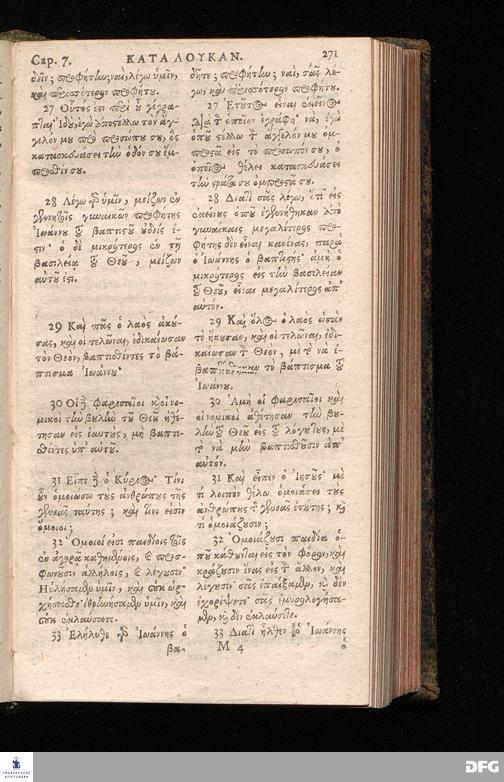 Cap. 7. ΚΑΤΑ ΛΟΥΚΑΝ. 271
δεῖν; προφήτην; ναὶ, λέγω ὑμῖν,
καὶ περισσότερον προφήτου.
27 Οὗτός ἐστι περὶ οὗ γέγρα-
πται· Ἰδοὺ, ἐγὼ ἀποστέλλω τὸν ἄγ-
γελόν μου πρὸ προσώπου σου, ὃς
κατασκευάσει τὴν ὁδόν σου ἔμ-
προσθέν σου.
28 Λέγω γὰρ ὑμῖν, μείζων ἐν
γεννητοῖς γυναικῶν προφήτης
Ἰωάννου τοῦ βαπτιστοῦ οὐδείς ἐ-
στιν· ὁ δὲ μικρότερος ἐν τῇ
βασιλείᾳ τοῦ Θεοῦ, μείζων
αὐτοῦ ἐστι.
29 Καὶ πᾶς ὁ λαὸς ἀκού-
σας, καὶ οἱ τελῶναι, ἐδικαίωσαν
τὸν Θεὸν, βαπτισθέντες τὸ βά-
πτισμα Ἰωάννου·
30 Οἱ δὲ Φαρισαῖοι καὶ οἱ νο-
μικοὶ τὴν βουλὴν τοῦ Θεοῦ ἠθέ-
τησαν εἰς ἑαυτοὺς, μὴ βαπτι-
σθέντες ὑπ' αὐτοῦ.
31 Εἶπε δὲ ὁ Κύριος· Τίνι
οὖν ὁμοιώσω τοὺς ἀνθρώπους τῆς
γενεᾶς ταύτης; καὶ τίνι εἰσὶν
ὅμοιοι;
32 Ὅμοιοί εἰσι παιδίοις τοῖς
ἐν ἀγορᾷ καθημένοις, καὶ προσ-
φωνοῦσιν ἀλλήλοις, καὶ λέγουσιν·
Ηὐλήσαμεν ὑμῖν, καὶ οὐκ ὠρ-
χήσασθε· ἐθρηνήσαμεν ὑμῖν, καὶ
οὐκ ἐκλαύσατε.
33 Ἐλήλυθε γὰρ Ἰωάννης ὁ
βα-
δῆτε; προφήτην; ναὶ, σᾶς λέ-
γω, καὶ περισσότερον προφήτου.
27 Ἐτοῦτος εἶναι ἐκεῖνος
διὰ τὸν ὁποῖον ἐγράφη· νὰ, ἐγὼ
ὁποῦ στέλλω τὸν ἄγγελόν μου ὀμ-
προστὰ εἰς τὸ πρόσωπόν σου, ὁ
ὁποῖος θέλει κατασκευάσει
τὴν στράτα σου ὀμπροστά σου.
28 Διατὶ σᾶς λέγω, ὅτι εἰς
ἐκείνους ὁποῦ ἐγεννήθηκαν ἀπὸ
γυναῖκαις μεγαλίτερος προ-
φήτης δὲν εἶναι κανένας, παρὰ
ὁ Ἰωάννης ὁ βαπτιστής· ἀμὴ ὁ
μικρότερος εἰς τὴν βασιλείαν
τοῦ Θεοῦ, εἶναι μεγαλίτερος ἀπ'
αὐτόν.
29 Καὶ ὅλος ὁ λαὸς ὡσὰν
τὸ ἤκουσαν, καὶ οἱ τελῶναι, ἐδι-
καίωσαν τὸν Θεὸν, μετὸ νὰ ἐ-
βαπτίσθησαν τὸ βάπτισμα τοῦ
Ἰωάννου.
30 Ἀμὴ οἱ Φαρισαῖοι καὶ
οἱ νομικοὶ ἀθέτησαν τὴν βου-
λὴν τοῦ Θεοῦ εἰς τοῦ λόγου τους, με
τὸ νὰ μὴν βαπτισθοῦσιν ἀπ'
αὐτόν.
31 Καὶ εἶπεν ὁ Ἰησοῦς· μὲ
τί λοιπὸν θέλω ὁμοιάσει τοὺς
ἀνθρώπους τῆς γενεᾶς ἐτούτης; καὶ
τί ὁμοιάζουσιν;
32 Ὁμοιάζουσι παιδία ὁ-
ποῦ κάθουνται εἰς τὸν φόρον, καὶ
κράζουσιν ἕνας εἰς τὸν ἄλλον, καὶ
λέγουσιν· σᾶς ἐπαίξαμεν, καὶ δὲν
ἐχορέψετε· σᾶς ἐμυρολογήσα-
μεν, καὶ δὲν ἐκλαύσετε.
33 Διατὶ ἦλθεν ὁ Ἰωάννης
M 4 ὁ
DFG